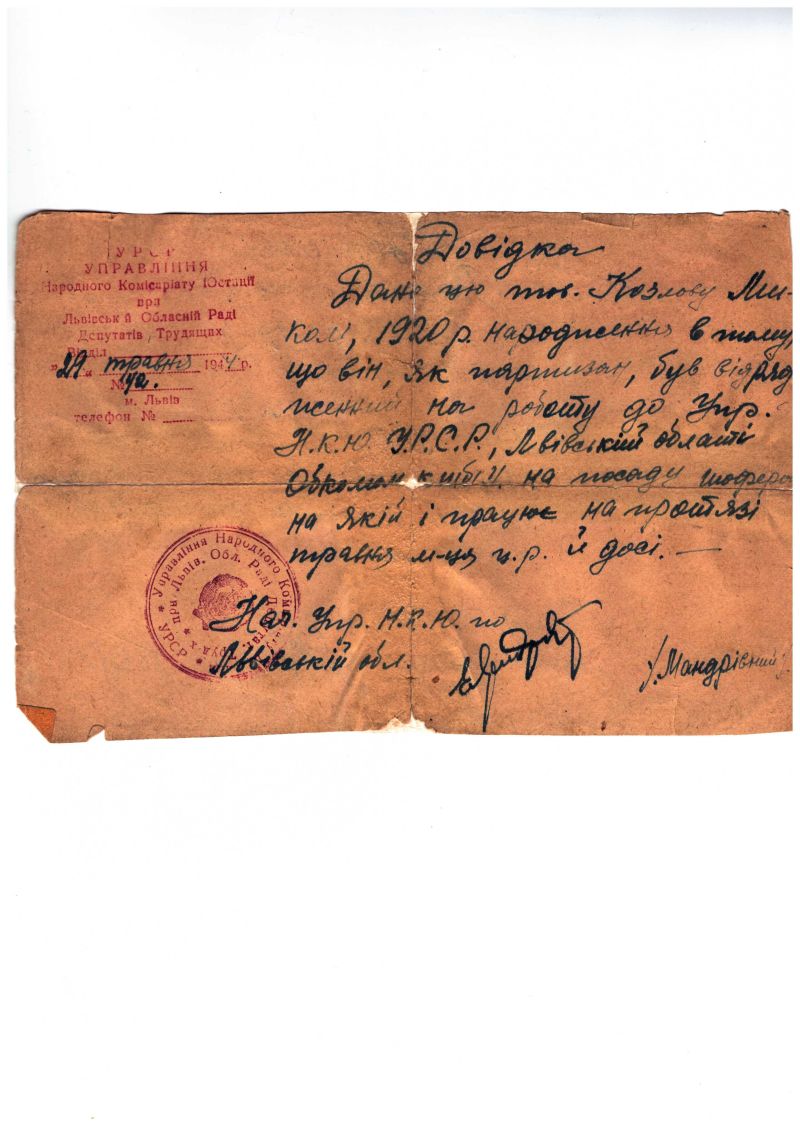 УРСР
УПРАВЛІННЯ
Народного Комісаріату Юстиції
при
Львівській Обласній Раді
Депутатів Трудящих
Відділ
"29" травня 1944 р.
№ 42.
м. Львів
телефон №
Довідка
Дана цю тов. Козлову Ми-
колі, 1920 р. народження в тому,
що він, як партизан, був відряд
женний на роботу до Упр.
Н.К.Ю. У.Р.С.Р., Львівській області
Обкомом на посаду шофера
на якій і працює на протязі
травня м-ця ц.р. й досі. —
Управління Народного Комі
при Львів. Обл. Раді
УРСР
Нач. Упр. Н.К.Ю. по
Львівській обл.
/Мандрівний/